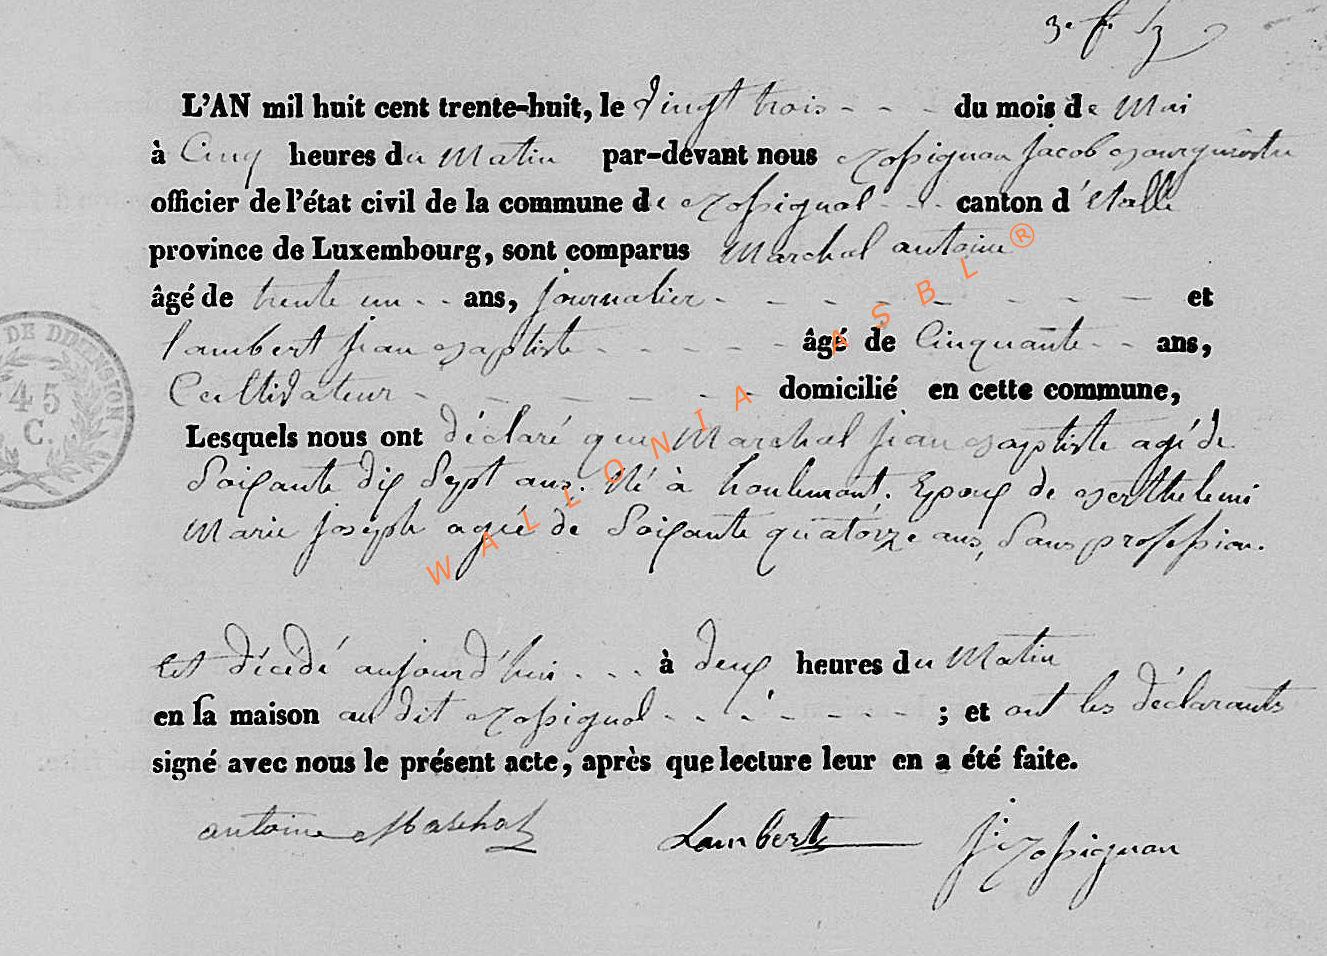 3. f. 
L'AN mil huit cent trente-huit, le Vingt trois - - - du mois de Mai
à Cinq heures du Matin par-devant nous Rossignon Jacob Bourguemestre
officier de l'état civil de la commune de Rossignol - - - canton d'étalle
province de Luxembourg, sont comparus Marchal antoine
âgé de trente un - - ans, journalier - - - - - - - - - et
Lambert jean Baptiste - - - - - âgé de Cinquante - - ans,
Cultivateur - - - - - - - domicilié en cette commune,
Lesquels nous ont déclaré que Marchal jean Baptiste agé de
Soixante dix Sept ans. Né à houlemont. Epoux de Berthelemi
Marie joseph agée de Soixante quatorze ans, Sans profession.
Est décédé aujourd'hui - - - à deux heures du Matin
en sa maison au dit Rossignol - - - - - - - ; et ont les déclarants
signé avec nous le présent acte, après que lecture leur en a été faite.
antoine Marchal Lambert J. Rossignon
DE DIMENSION
45
C.
WALLONIA ASBL®